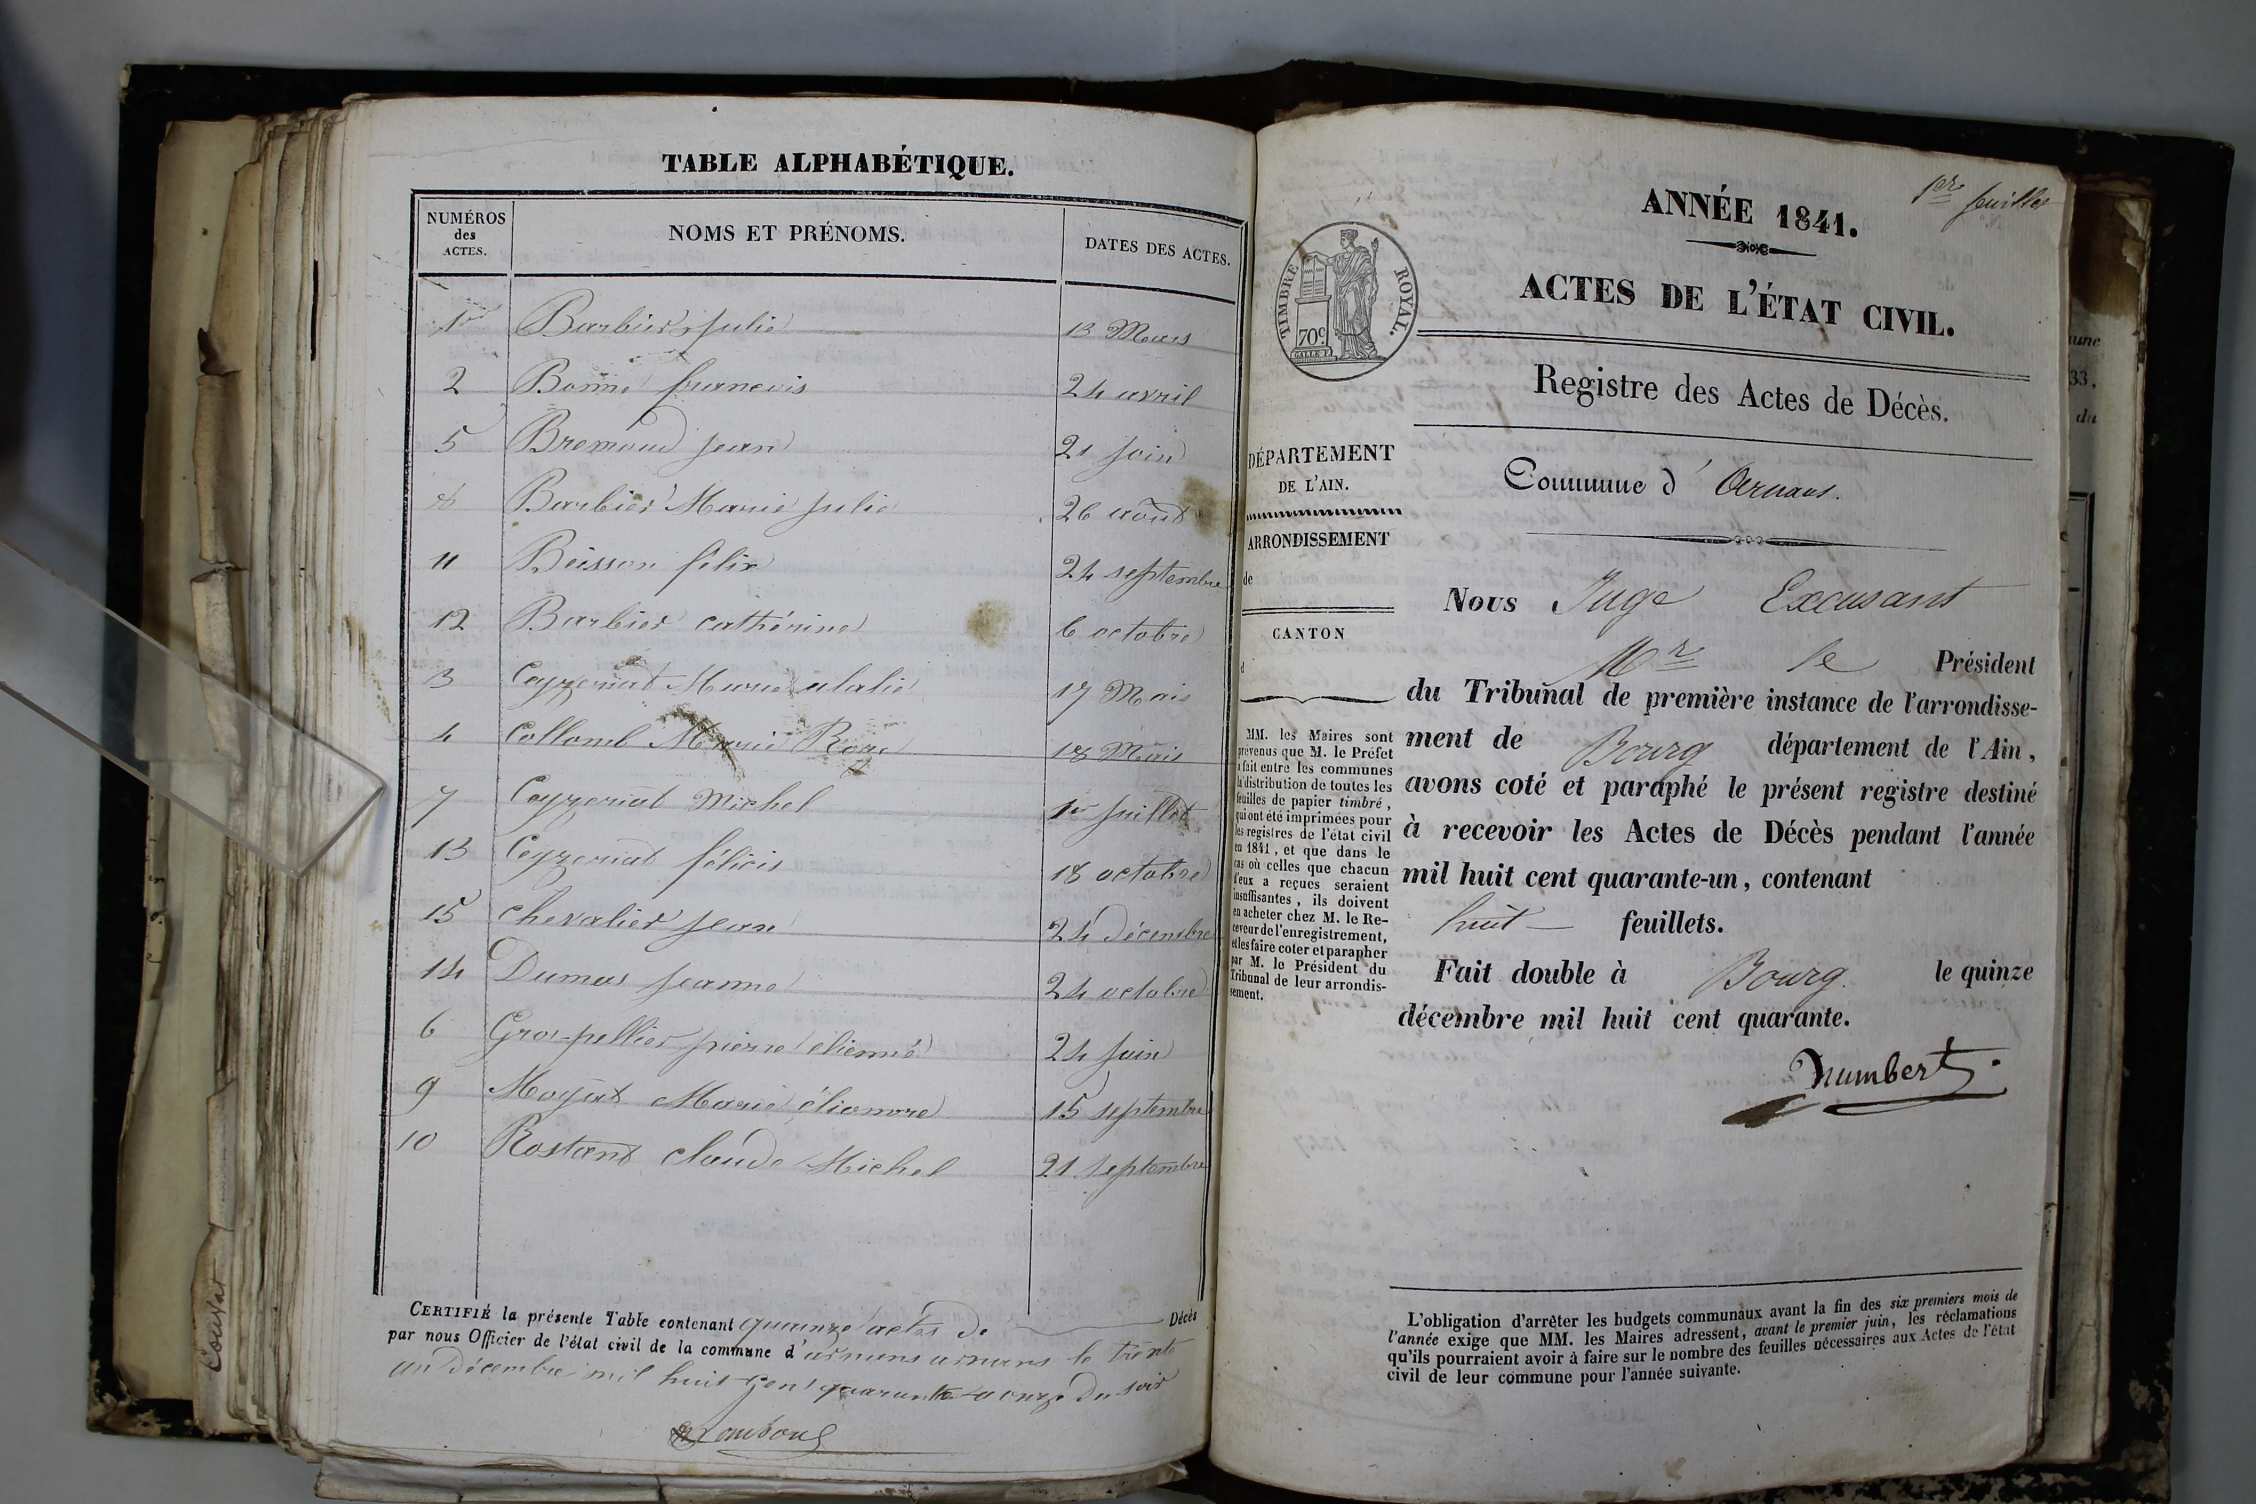 TABLE ALPHABÉTIQUE.
NUMÉROS des ACTES. NOMS ET PRÉNOMS. DATES DES ACTES.
1er Barbier Julie 13 Mars
2 Bonne francois 24 avril
5 Bremond Jean 21 Join
8 Barbier Marie Julie 26 août
11 Beisson félix 24 septembre
12 Barbier cathérine 6 octobre
3 Ceyzeriat Marie ulalie 17 Mais
4 Collomb Marie Rose 18 Mais
7 Ceyzeriat Michel 1er Juillet
13 Ceyzeriat félicis 18 octobre
15 chevalier Jean 24 décembre
14 Dumas Jeanne 24 octobre
6 Gros-pellier pierre étienne 24 Juin
9 Moyat Marie élionore 15 septembre
10 Rostant claude Michel 21 septembre
CERTIFIÉ la présente Table contenant quinze actes de Décès
par nous Officier de l'état civil de la commune d'arnans arnans le trente
un décembre mil huit cent quarante a onze du soir
Couyat
1er feuillet
ANNÉE 1841.
ACTES DE L'ÉTAT CIVIL.
TIMBRE ROYAL.
70c
Registre des Actes de Décès.
DÉPARTEMENT
DE L'AIN.
ARRONDISSEMENT
de
CANTON
d
MM. les Maires sont
prévenus que M. le Préfet
a fait entre les communes
la distribution de toutes les
feuilles de papier timbré,
qui ont été imprimées pour
les registres de l'état civil
en 1841, et que dans le
cas où celles que chacun
d'eux a reçues seraient
insuffisantes, ils doivent
en acheter chez M. le Re-
ceveur de l'enregistrement,
et les faire coter et parapher
par M. le Président du
Tribunal de leur arrondis-
sement.
Commune d'Arnans.
Nous Juge Excusant
Mr le Président
du Tribunal de première instance de l'arrondisse-
ment de Bourg département de l'Ain,
avons coté et paraphé le présent registre destiné
à recevoir les Actes de Décès pendant l'année
mil huit cent quarante-un, contenant
huit feuillets.
Fait double à Bourg. le quinze
décembre mil huit cent quarante.
humbert
L'obligation d'arrêter les budgets communaux avant la fin des six premiers mois de
l'année exige que MM. les Maires adressent, avant le premier juin, les réclamations
qu'ils pourraient avoir à faire sur le nombre des feuilles nécessaires aux Actes de l'état
civil de leur commune pour l'année suivante.
33.
du